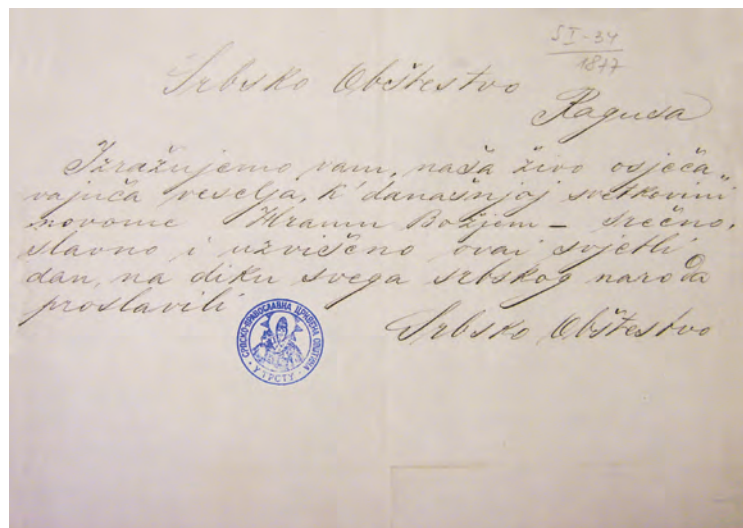 SI-34
1877
Srbsko Obštestvo
Ragusa
Izražujemo vam, naša živo osječa„
vajuča veselja, k' današnjoj svetkovini
novome Hramu Božjem – srečno,
slavno i uzvišeno ovai svjetli
dan, na diku svega srbskog naroda
proslavili
Srbsko Obštestvo
СРПСКО-ПРАВОСЛАВНА ЦРКВЕНА ОПШТИНА
У ТРСТУ